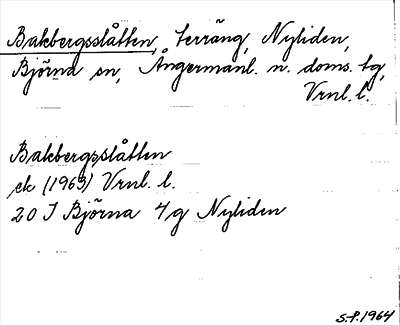 Bakbergsslåtten, terräng, Nyliden,
Björna sn, Ångermanl. n. doms. tg,
Vrnl. l.
Bakbergsslåtten
ek (1963) Vrnl. l.
20 J Björna 4g Nyliden
S.P. 1964